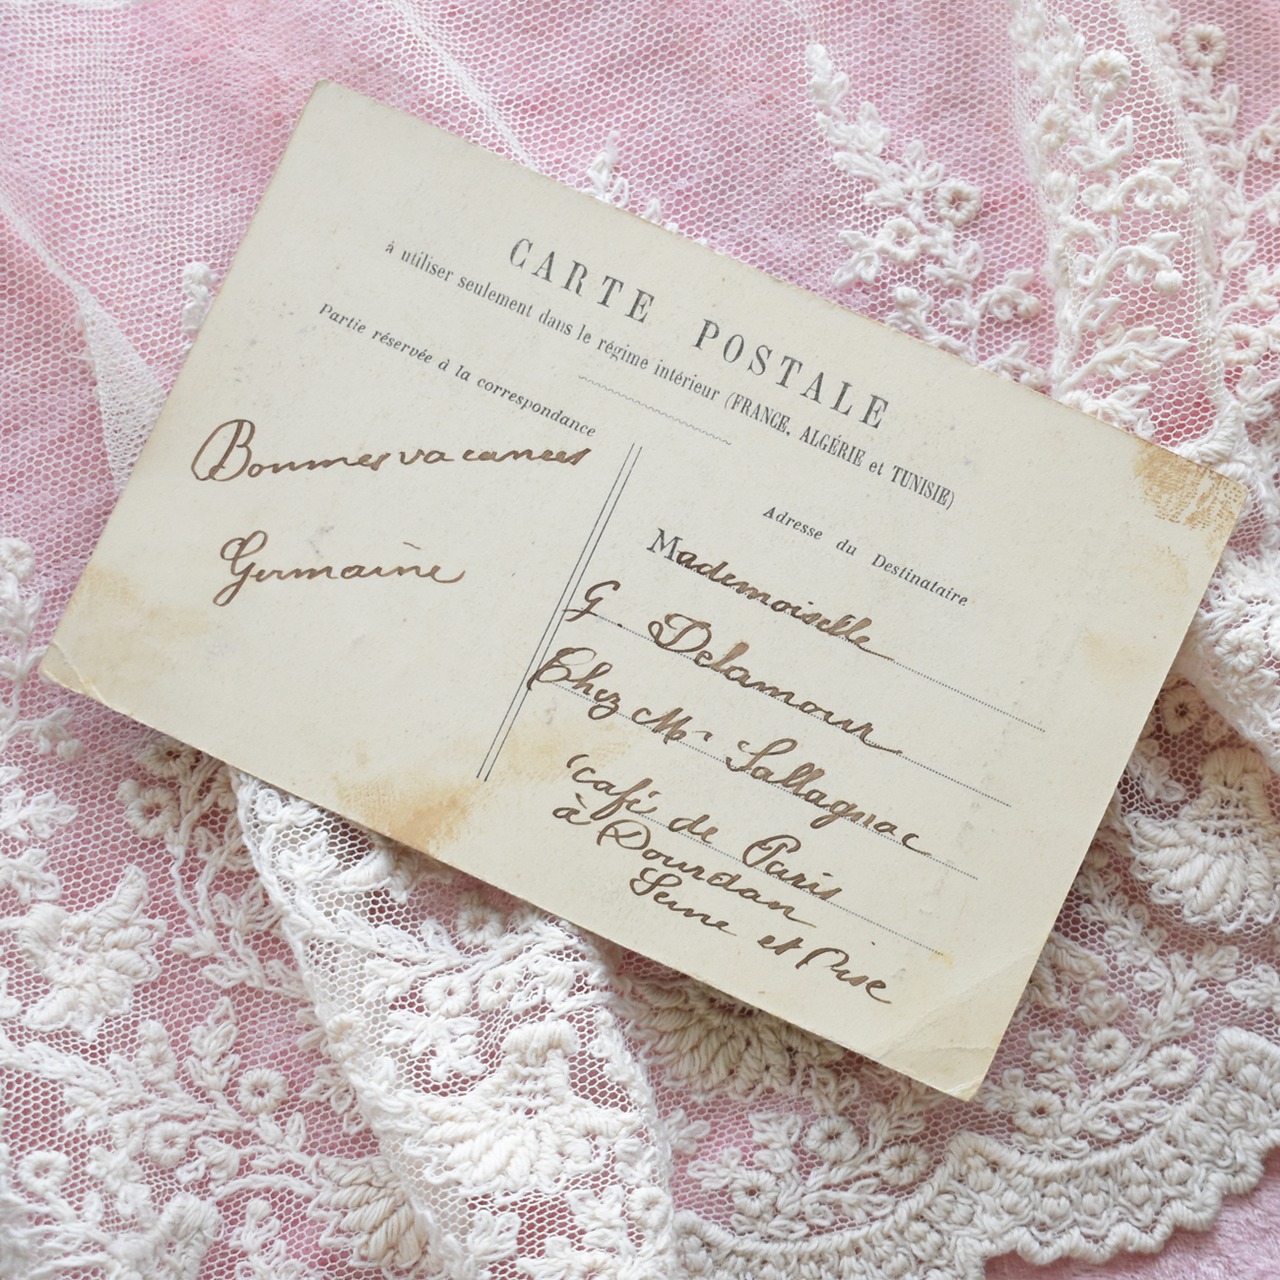 CARTE POSTALE
à utiliser seulement dans le régime intérieur (FRANCE, ALGÉRIE et TUNISIE)
Partie réservée à la correspondance
Bonnes vacances
Germaine
Adresse du Destinataire
Mademoiselle
G. Delamour
Chez Mr Sallagnac
café de Paris
à Dourdan
Seine et Oise